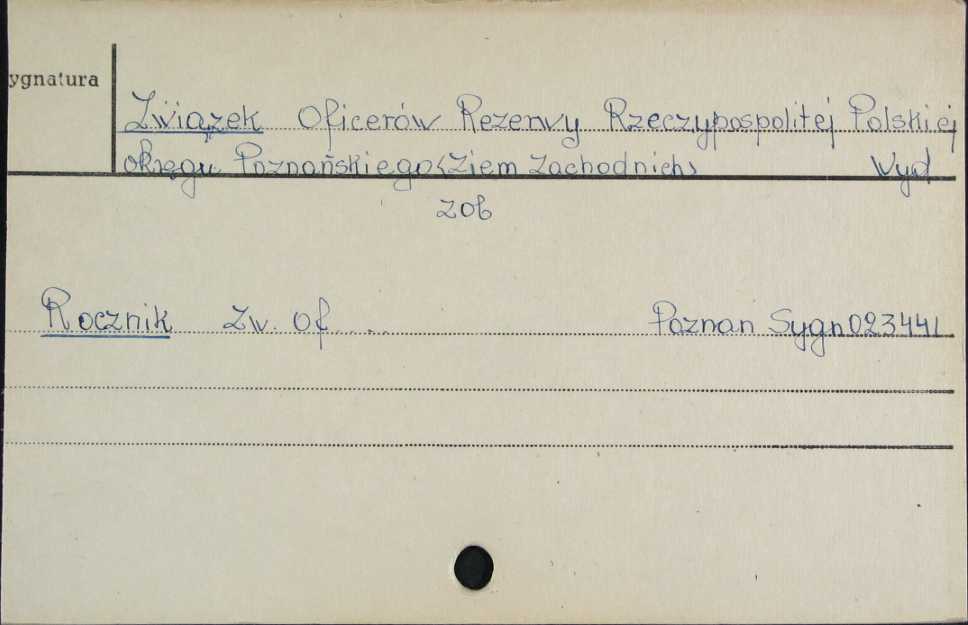 ygnatura
Związek Oficerów Rezerwy Rzeczypospolitej Polskiej
okręgu Poznańskiego (Ziem Zachodnich) Wyd
zob
Rocznik Zw. Of.... Poznan Sygn 023441